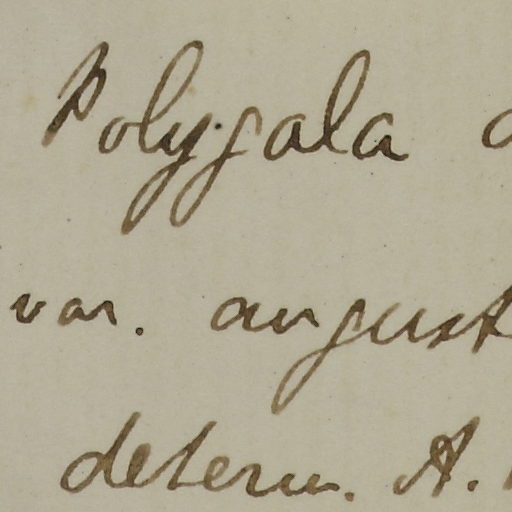 Polygala
var. angust
determ. A.